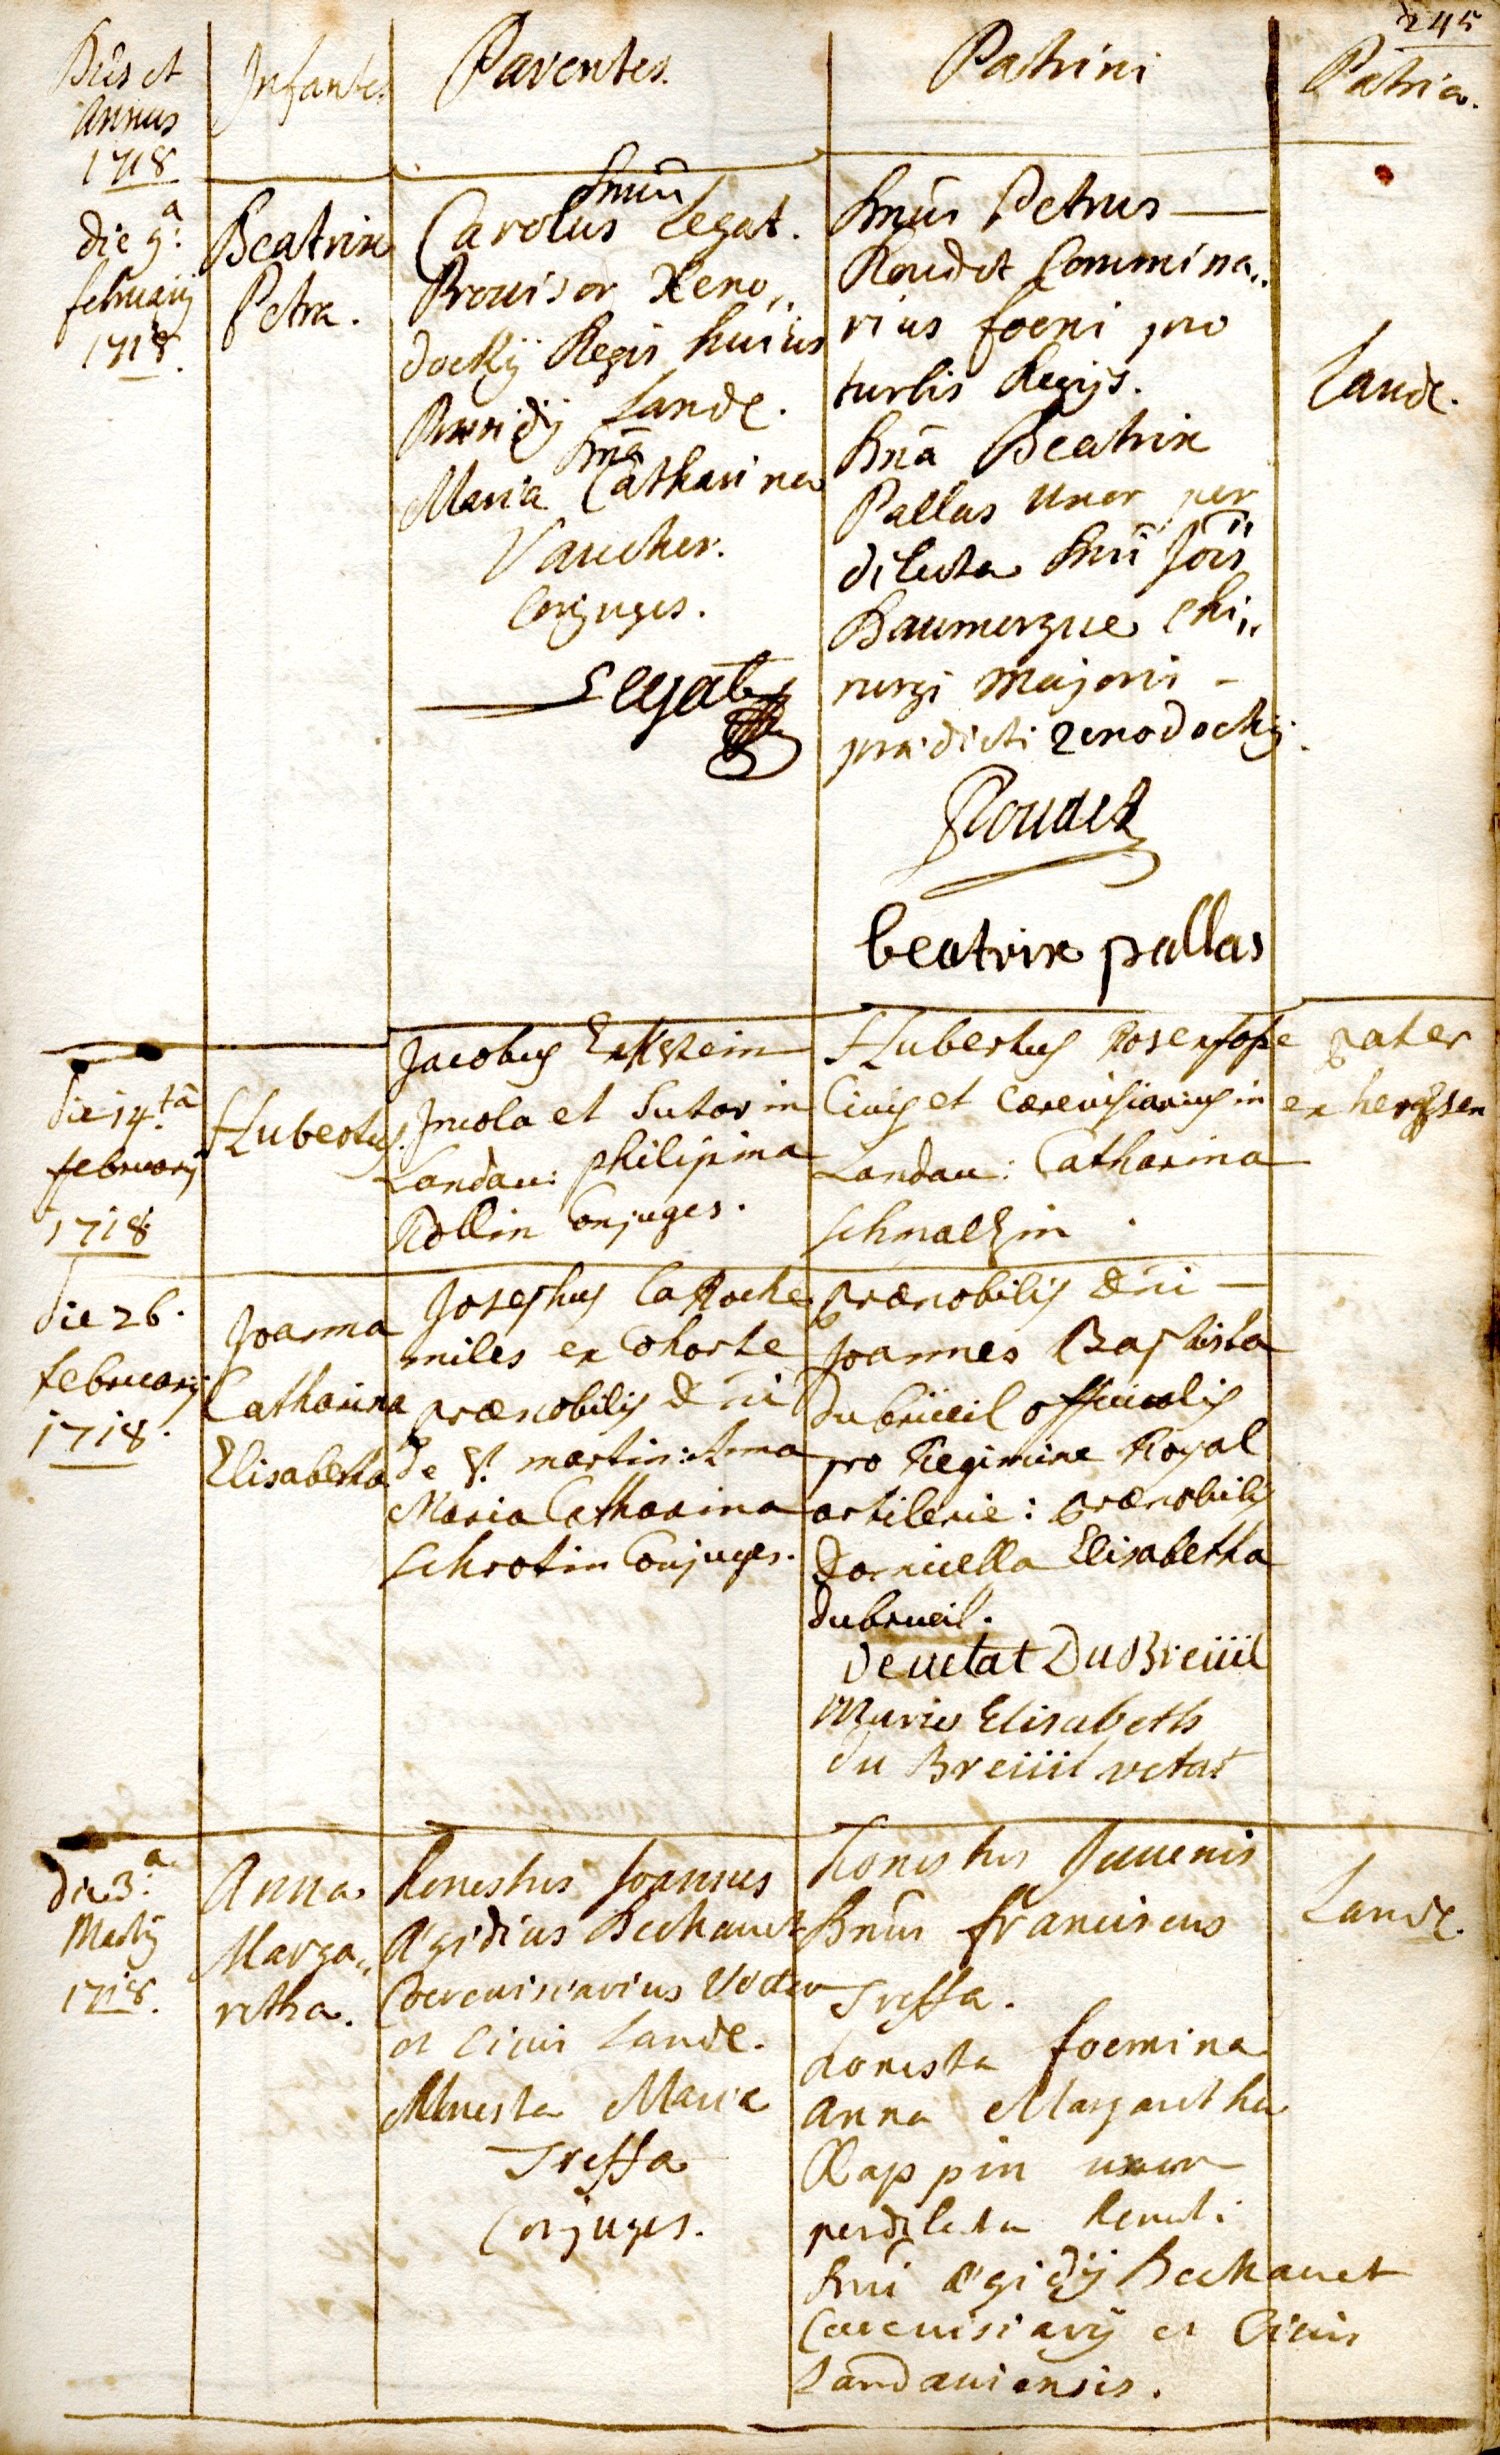 245
Dies et
Annus
1718
Infantes
Parentes.
Patrini
Patria.
die 9.a
februarij
1718.
Beatrix
Petra.
Dnus
Carolus Legat.
Provisor Xeno,,
dochij Regis huius
Landę.
Dna
Maria Catharina
Vaucher.
Conjuges.
Legat
Dnus Petrus —
Roudet Commissa,,
rius foeni pro
turbis Regijs.
Dna Beatrix
Pallas Uxor per
dilecta Dni Jois
Baumergue Chi,,
rurgi Majoris -
praedicti xenodochij.
Roudet
beatrix pallas
Landę.
die 14.ta
februarij
1718
Hubertus.
Jacobus Eckstein
Incola et Sutor in
Landau: philipina
Rollin Conjuges.
Hubertus
Civis et Cerevisiarius in
Landau: Catharina
Schmalzin.
pater
ex
die 26.
februarij
1718.
Joanna
Catharina
Elisabetha
Josephus LaRoche
miles ex Cohorte
praenobilis Dni
de St. martin:
Maria Catharina
Schrotin Conjuges.
praenobilis Dni —
Joannes Baptista
dubrüeil officialis
pro Regimine Royal
artilerie: praenobilis
Domicella Elisabetha
dubrueil.
De vetat Du Breüil
Marie Elisabeth
du Breüil vetat
die 3.a
Martij
1718.
Anna
Marga,,
retha.
honestus Joannes
Ægidius Beckauet
Coerevisiarius
et Civis Landę.
Honesta Maria
Treffa
Conjuges.
honestus Juvenis
Dnus Franciscus
Treffa.
honesta foemina
Anna Margaretha
Rappin uxor
perdilecta honesti
Dni Ægidij Beckauet
Cerevisiarij et Civis
Landaviensis.
Landę.